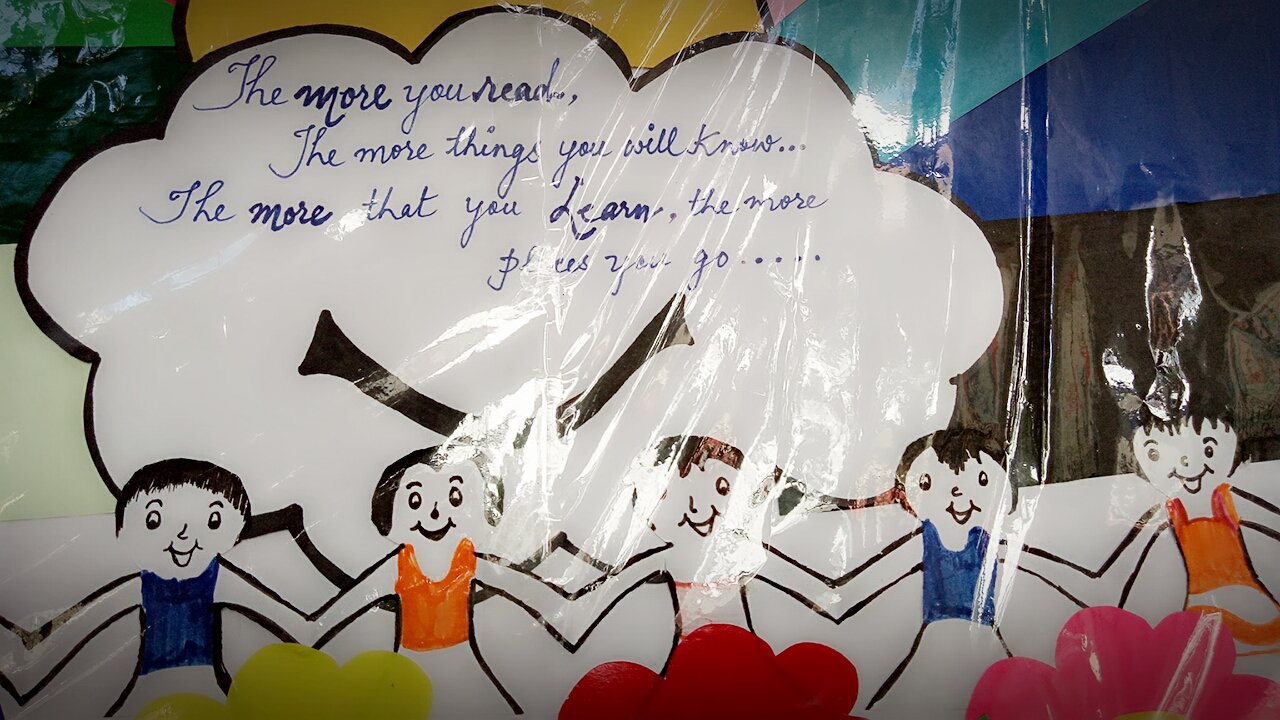 The more you read,
The more things you will know...
The more that you Learn, the more
places you go.....